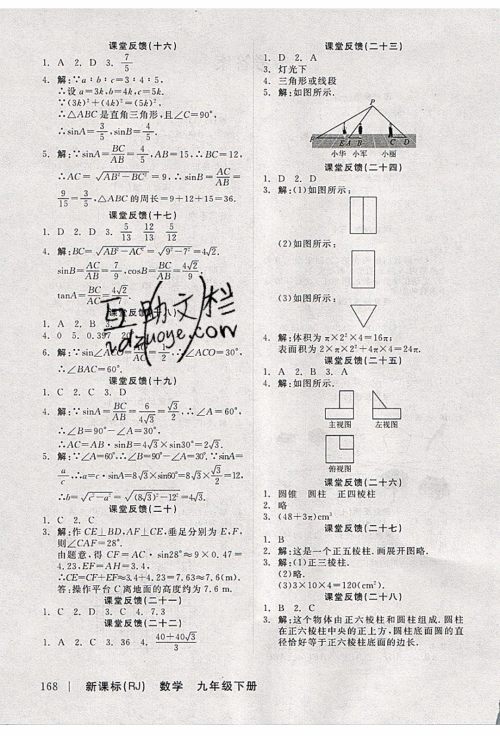 课堂反馈(十六)
1. A 2. D 3. 7/5
4. 解:∵a:b:c=3:4:5,
∴设a=3k,b=4k,c=5k.
∵(3k)²+(4k)²=(5k)²,
∴△ABC是直角三角形,且∠C=90°,
∴sinA=3/5,sinB=4/5.
5. 解:∵sinA=BC/AB=4/5,AB=15,∴BC=12,
∴AC=√(AB²-BC²)=9,∴sinB=AC/AB=
9/15=3/5,△ABC的周长=9+12+15=36.
课堂反馈(十七)
1. D 2. D 3. 5/13 12/13 5/12
4. 解:BC=√(AB²-AC²)=√(9²-7²)=4√2.
sinB=AC/AB=7/9,cosB=BC/AB=4√2/9
tanA=BC/AC=4√2/7
课堂反馈
1. A 2. B 3.
4. 0 5. 0.397
6. 解:∵sin∠ =1/2,∴∠ACO=30°,
∴∠BAC=60°.
课堂反馈(十九)
1. C 2. C 3. D
4. 解:∵sinA=BC/AB=6/4√3=√3/2,∴∠A=60°,
∴∠B=90°-∠A=30°,
∴AC=AB·sinB=4√3×sin30°=2√3.
5. 解:∵∠A=60°,∴∠B=90°-∠A=30°.∵sinA=
a/c,∴a=c·sinA=8√3×sin60°=8√3×√3/2=12,
∴b=√(c²-a²)=√((8√3)²-12²)=4√3.
课堂反馈(二十)
1. C 2. C
3. 解:作CE⊥BD,AF⊥CE,垂足分别为E,F,
则∠CAF=28°.
由题意,得CF=AC·sin28°≈9×0.47=
4.23,EF=AH=3.4,
∴CE=CF+EF≈3.4+4.23=7.63≈7.6(m).
答:操作平台C离地面的高度约为7.6 m.
课堂反馈(二十一)
1. D 2. D 3. C 4. 7.3
课堂反馈(二十二)
1. A 2. C 3. 36 4. (40+40√3)/3
168 | 新课标(RJ) 数学 九年级下册
课堂反馈(二十三)
1. D 2. A
3. 灯光下
4. 三角形或线段
5. 解:如图所示.
P
E A B C D
小华 小军 小丽
课堂反馈(二十四)
1. D 2. D
3. 解:(1)如图所示:
(2)如图所示:
(3)如图所示:
4. 解:体积为π×2²×4=16π;
表面积为2×π×2²+4π×4=24π.
课堂反馈(二十五)
1. A 2. B 3. A
4. 解:如图所示.
主视图 左视图
俯视图
课堂反馈(二十六)
1. 圆锥 圆柱 正四棱柱
2. 略
3. (48+3π)cm²
课堂反馈(二十七)
1. B
2. 解:这是一个正五棱柱.画展开图略.
3. 解:(1)正三棱柱.
(2)略.
(3)3×10×4=120(cm²).
课堂反馈(二十八)
1. B 2. C
3. 解:这个物体由正六棱柱和圆柱组成.圆柱
在正六棱柱中央的正上方,圆柱底面圆的直
径恰好等于正六棱柱底面的边长.
互助文栏
hdzuoye.com